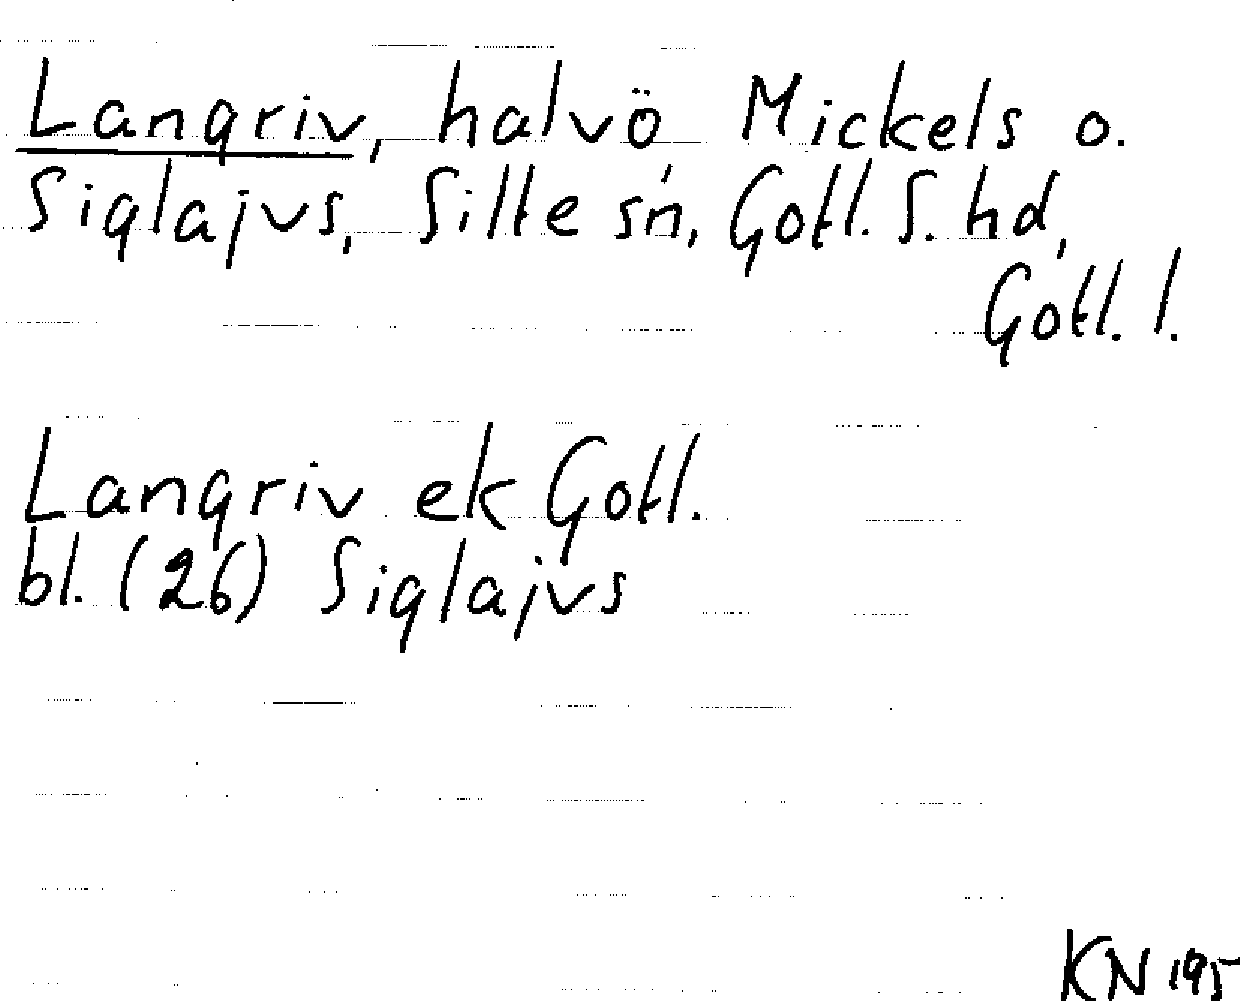 Langriv, halvö, Mickels o.
Siglajvs, Silte sn, Gotl. S. hd,
Gotl. l.
Langriv ek Gotl.
bl. (26) Siglajvs
KN 195